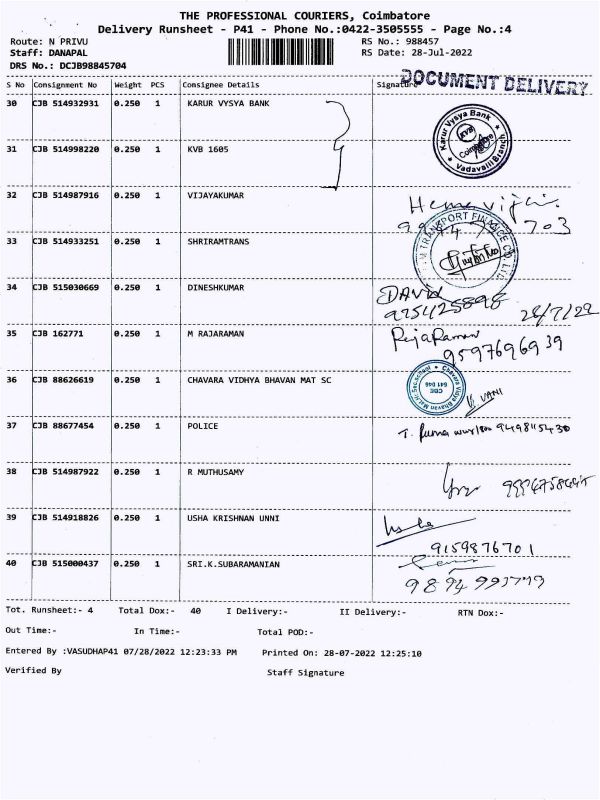 THE PROFESSIONAL COURIERS, Coimbatore
Delivery Runsheet - P41 - Phone No.:0422-3505555 - Page No.:4
Route: N PRIVU RS No.: 988457
Staff: DANAPAL RS Date: 28-Jul-2022
DRS No.: DCJB98845704
DOCUMENT DELIVERY
S No Consignment No Weight PCS Consignee Details Signature
30 CJB 514932931 0.250 1 KARUR VYSYA BANK
Karur Vysya Bank
KVB
Coimbatore
Vadavalli Branch
31 CJB 514998220 0.250 1 KVB 1605
32 CJB 514987916 0.250 1 VIJAYAKUMAR
703
33 CJB 514933251 0.250 1 SHRIRAMTRANS
TRANSPORT FINANCE CO. LTD
34 CJB 515030669 0.250 1 DINESHKUMAR DAVID
28/7/22
35 CJB 162771 0.250 1 M RAJARAMAN RajaRaman
9597696939
36 CJB 88626619 0.250 1 CHAVARA VIDHYA BHAVAN MAT SC
Chavara Vidya Bhavan Mat.Hr.Sec.School
CBE
641 046
VANI
37 CJB 88677454 0.250 1 POLICE
38 CJB 514987922 0.250 1 R MUTHUSAMY
39 CJB 514918826 0.250 1 USHA KRISHNAN UNNI Usha
9159876701
40 CJB 515000437 0.250 1 SRI.K.SUBARAMANIAN
Tot. Runsheet:- 4 Total Dox:- 40 I Delivery:- II Delivery:- RTN Dox:-
Out Time:- In Time:- Total POD:-
Entered By :VASUDHAP41 07/28/2022 12:23:33 PM Printed On: 28-07-2022 12:25:10
Verified By Staff Signature